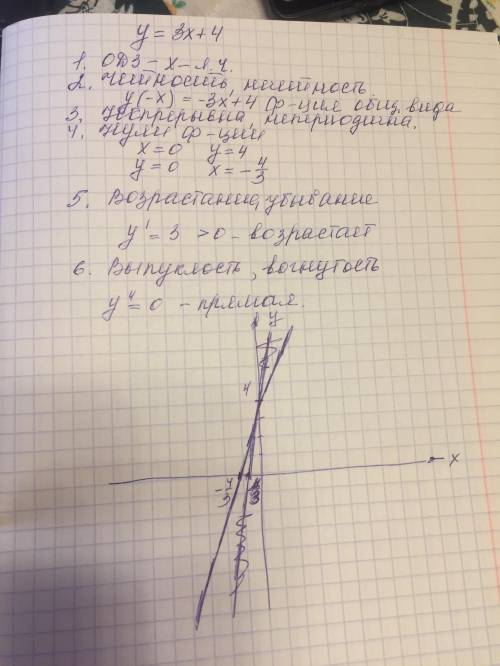 y = 3x+4
1. ОДЗ - x - л.ч.
2. Чётность, нечётность.
y(-x) = -3x+4 Ф-ция общ. вида
3. Непрерывна, непериодична.
4. Нули ф-ции
x=0 y=4
y=0 x=-4/3
5. Возрастание, убывание
y' = 3 >0 - возрастает
6. Выпуклость, вогнутость
y"=0 - прямая.
y
4
x
-4/3